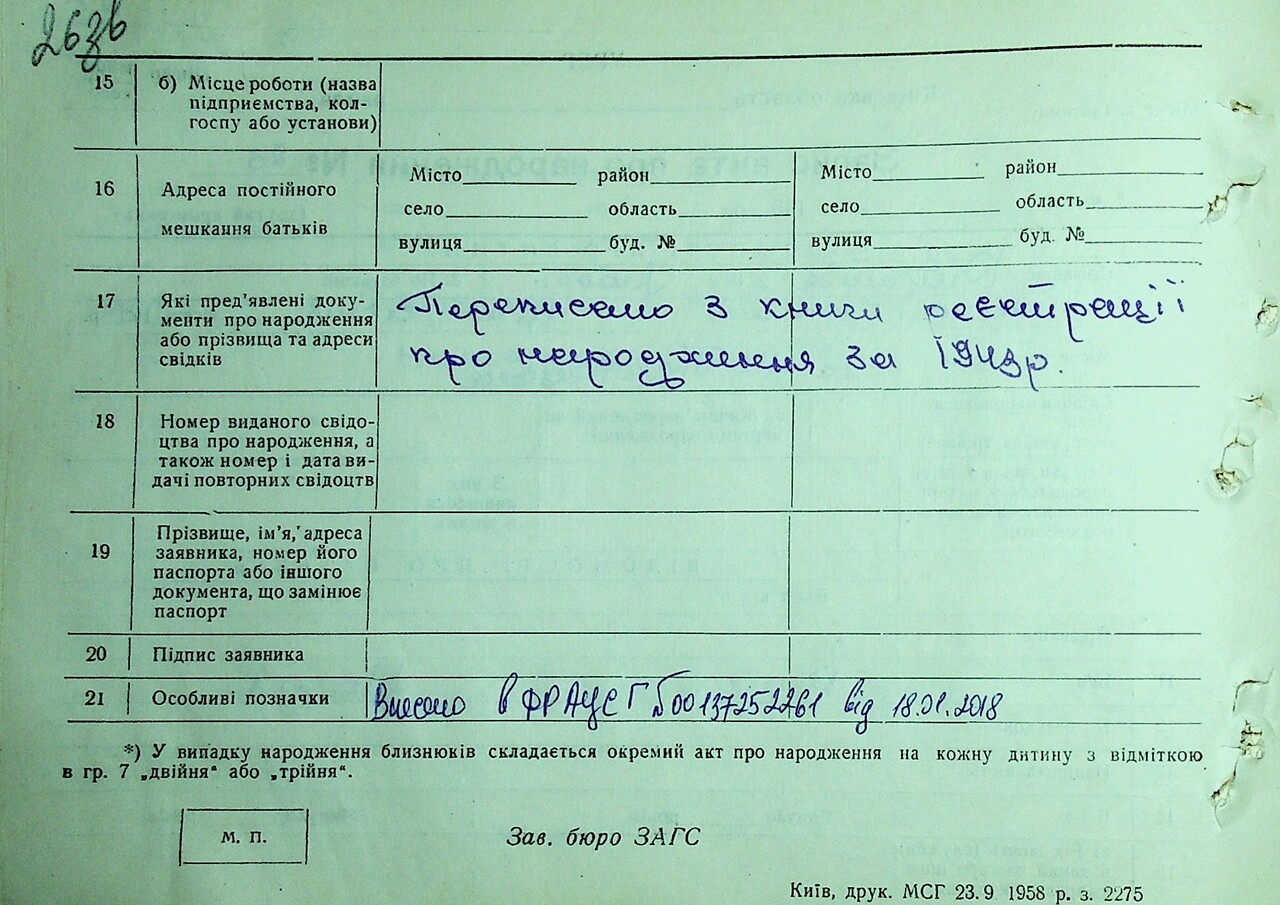 26зв
15 б) Місце роботи (назва
підприємства, кол-
госпу або установи)
16 Адреса постійного
мешкання батьків
Місто район Місто район
село область село область
вулиця буд. № вулиця буд. №
17 Які пред’явлені доку-
менти про народження
або прізвища та адреси
свідків
Переписано з книги реєстрації
про народження за 1943р.
18 Номер виданого свідо-
цтва про народження, а
також номер і дата ви-
дачі повторних свідоцтв
19 Прізвище, ім’я, адреса
заявника, номер його
паспорта або іншого
документа, що замінює
паспорт
20 Підпис заявника
21 Особливі позначки
Внесено в ФРАЦСГ 00137252261 від 18.01.2018
*) У випадку народження близнюків складається окремий акт про народження на кожну дитину з відміткою
в гр. 7 „двійня“ або „трійня“.
М. П.
Зав. бюро ЗАГС
Київ, друк. МСГ 23.9 1958 р. з. 2275